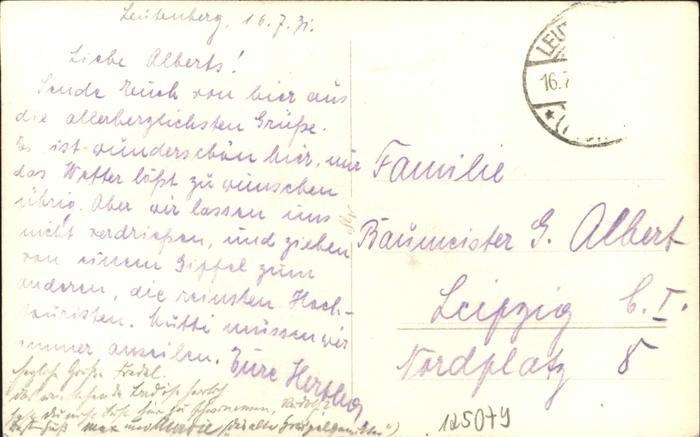 Leutenberg, 16.7.31.
Liebe Alberts!
Sende Euch von hier aus
die allerherzlichsten Grüße.
Es ist wunderschön hier, nur
das Wetter läßt zu wünschen
übrig. Aber wir lassen uns
nicht verdrießen, und ziehen
von einem Gipfel zum
anderen, die reinsten Hoch-
touristen. Mutti müssen wir
immer anseilen. Eure Hertha
herzliche Grüße Friedel.
LEU
16.7
Familie
Baumeister G. Albert
Leipzig C. I.
Nordplatz 8
125079